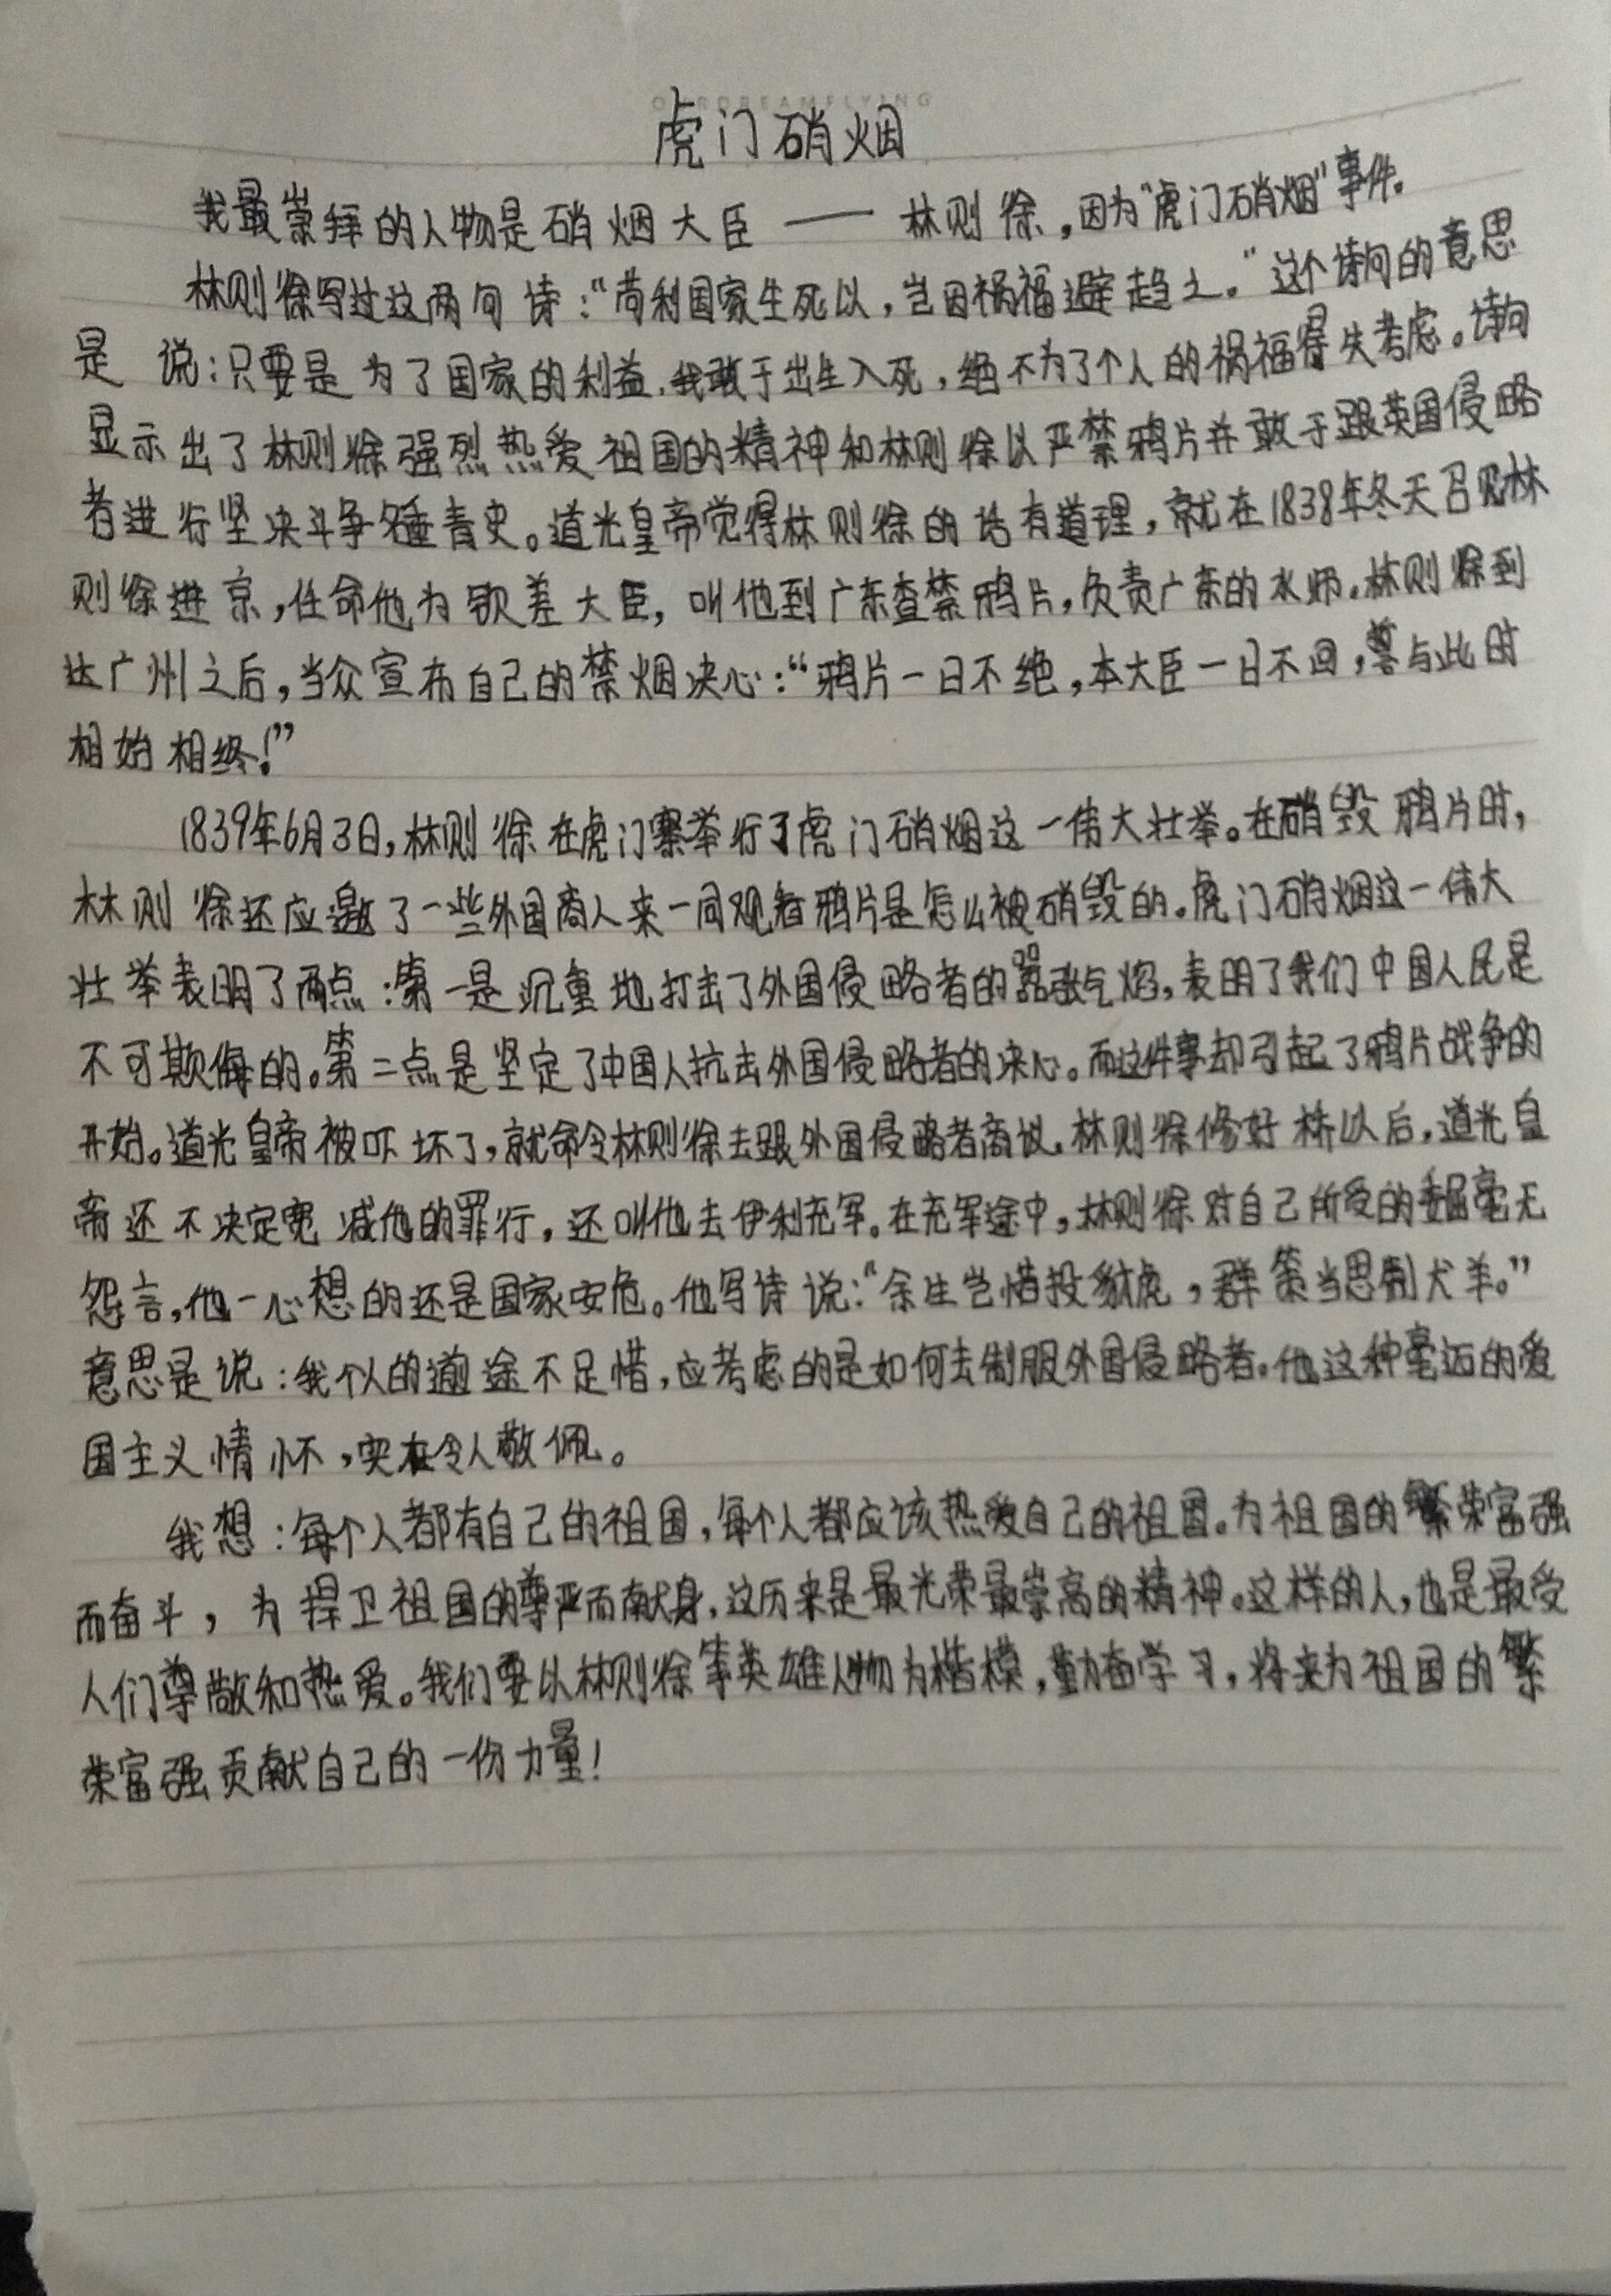 OURDREAMFLYING
虎门硝烟
我最崇拜的人物是硝烟大臣——林则徐,因为“虎门硝烟”事件。
林则徐写过这两句诗:“苟利国家生死以,岂因祸福避趋之。”这个诗句的意思
是说:只要是为了国家的利益,我敢于出生入死,绝不为了个人的祸福得失考虑。诗句
显示出了林则徐强烈热爱祖国的精神和林则徐以严禁鸦片并敢于跟英国侵略
者进行坚决斗争名垂青史。道光皇帝觉得林则徐的话有道理,就在1838年冬天召见林
则徐进京,任命他为钦差大臣,叫他到广东查禁鸦片,负责广东的水师。林则徐到
达广州之后,当众宣布自己的禁烟决心:“鸦片一日不绝,本大臣一日不回,誓与此时
相始相终!”
1839年6月3日,林则徐在虎门寨举行了虎门硝烟这一伟大壮举。在硝毁鸦片时,
林则徐还应邀了一些外国商人来一同观看鸦片是怎么被硝毁的。虎门硝烟这一伟大
壮举表明了两点:第一是沉重地打击了外国侵略者的嚣张气焰,表明了我们中国人民是
不可欺侮的。第二点是坚定了中国人抗击外国侵略者的决心。而这件事却引起了鸦片战争的
开始。道光皇帝被吓坏了,就命令林则徐去跟外国侵略者商议。林则徐修好桥以后,道光皇
帝还不决定宽减他的罪行,还叫他去伊利充军。在充军途中,林则徐对自己所受的委屈毫无
怨言,他一心想的还是国家安危。他写诗说:“余生岂惜投豺虎,群策当思制犬羊。”
意思是说:我个人的途不足惜,应考虑的是如何去制服外国侵略者。他这种毫迈的爱
国主义情怀,实在令人敬佩。
我想:每个人都有自己的祖国,每个人都应该热爱自己的祖国。为祖国的繁荣富强
而奋斗,为捍卫祖国的尊严而献身,这历来是最光荣最崇高的精神。这样的人,也是最受
人们尊敬和热爱。我们要以林则徐等英雄人物为楷模,勤奋学习,将来为祖国的繁
荣富强贡献自己的一份力量!